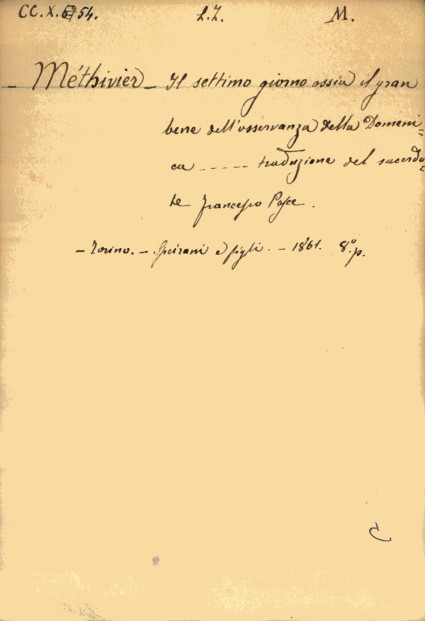 CC.X.54. L.I. M.
– Méthivier – Il settimo giorno ossia il gran
bene dell'osservanza della Domeni=
ca ----- traduzione del sacerdo=
te Francesco
– Torino. – Speirani e figli. – 1861. 8.° p.